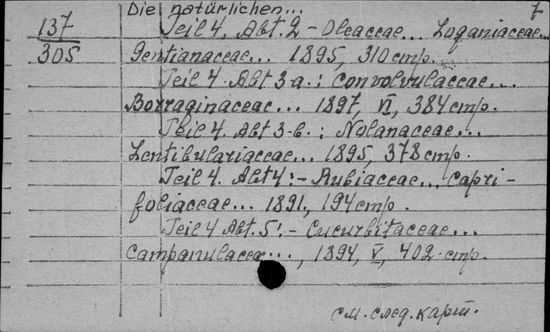 Die natürlichen... 7
137 Teil 4, Abt. 2 - Oleaceae... Loganiaceae...
305 Gentianaceae... 1895, 310 стр.
Teil 4. Abt 3-a.: Convolvulaceae...
Borraginaceae... 1897, VI, 384 стр.
Teil 4. Abt 3-b.: Nolanaceae...
Lentibulariaceae... 1895, 378 стр.
Teil 4. Abt 4: - Rubiaceae... Capri-
foliaceae... 1891, 194 стр.
Teil 4 Abt. 5: - Cucurbitaceae...
Campanulaceae..., 1894, V, 402 стр.
см. след. карт.